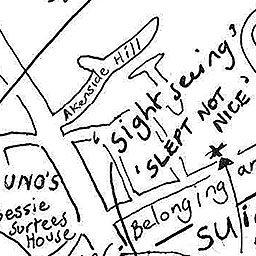 Akenside Hill
'Sight seeing'
'SLEPT NOT
NICE'
UNO'S
Bessie
Surtees
House
Belonging